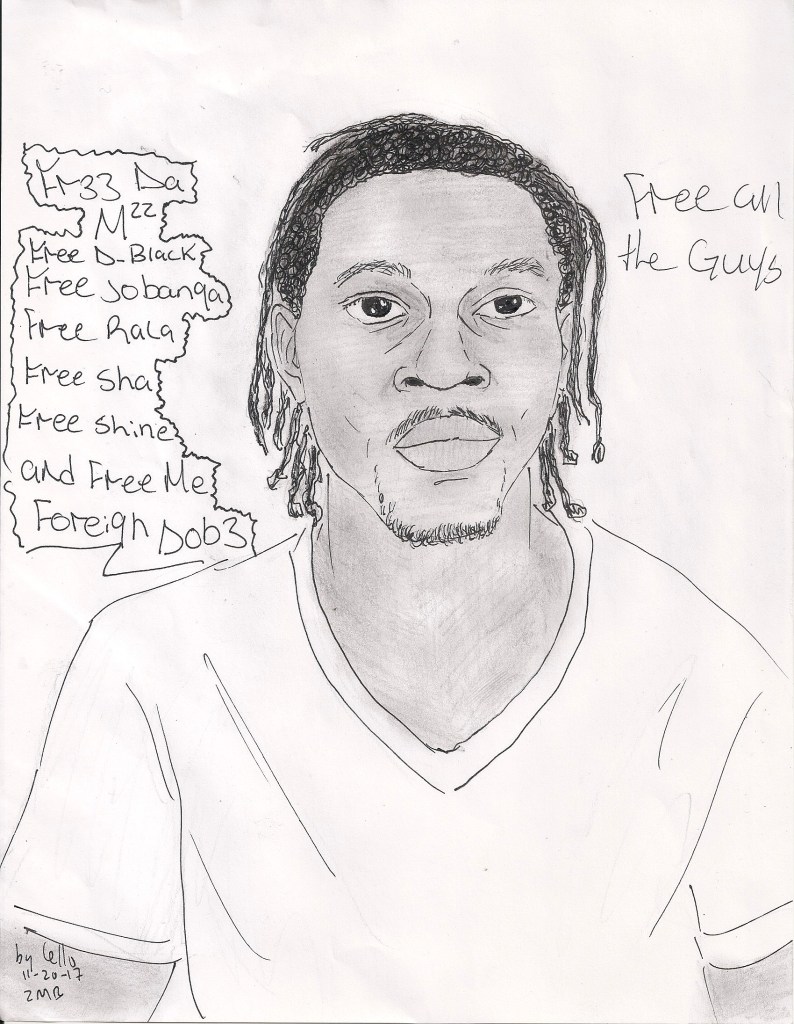 Fr33 Da
M22
Free D-Black
Free Jobanga
Free Rala
Free Sha
Free Shine
and Free Me
Foreign Dob3
Free all
the Guys
by Cello
11-20-17
ZMB